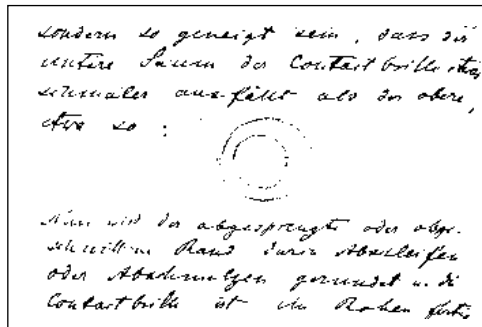 sondern so geneigt sein, dass der
untere Saum der Contactbrille etwas
schmäler ausfällt als der obere,
etwa so:
Nun wird der abgesprengte oder abge-
schnittene Rand durch Abschleifen
oder Abschmelzen gerundet u. die
Contactbrille ist im Rohen fertig